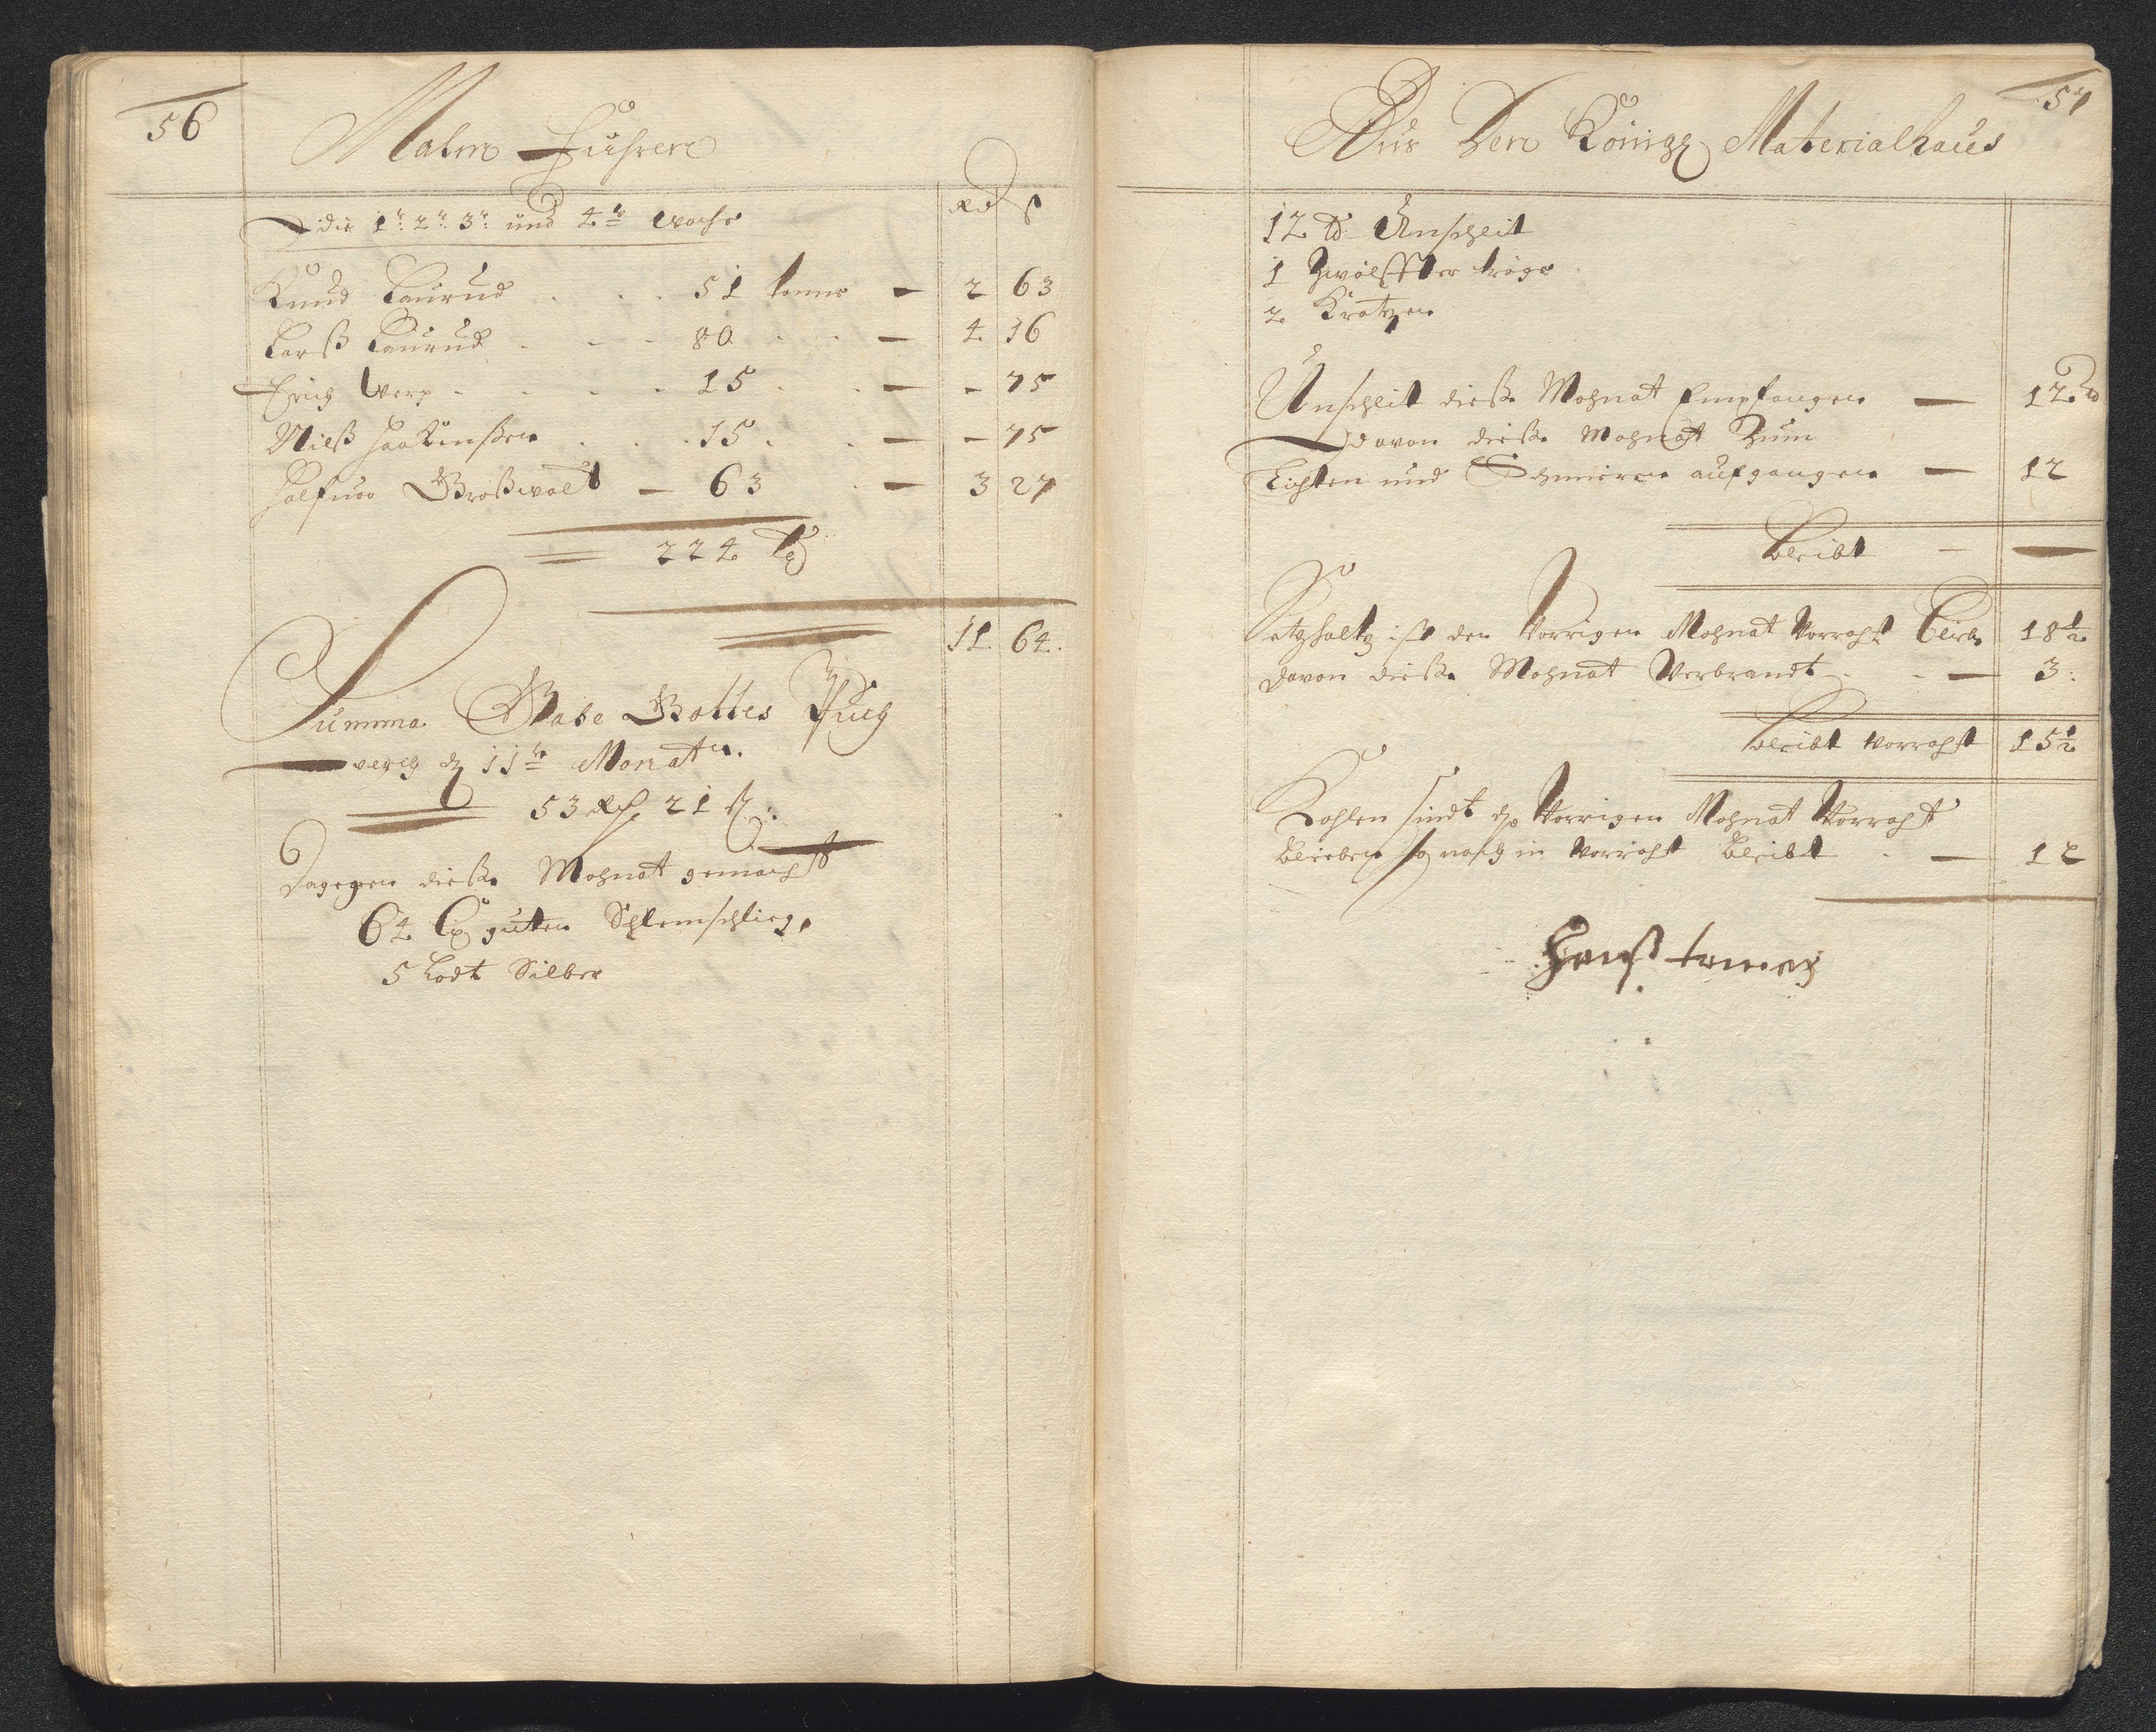 56
Malm Führen
Rd ß
Die 1te 2te 3te und 4te Woche
Knud Laurud . . . 51 tonne — 2 63
Larß Laurud . . . 80 . . — 4 16
Erich Werp . . . . 15 . . — - 75
Nielß Haakenßen . . . 15 . . — - 75
Halfuor Großwalt — 63 . — 3 27
224 
11 64.
Summa Gabe Gottes Puch
werch 11te Monat
53 Rd 21 ß
Dagegen dieße Mohnat gemacht
64 guten Schlemschlieg,
5 Lodt Silber
57
Aus Den Königl Materialhaus
12 ℔ Unscheit
1 Zwölffter tröge
2 Kratzen
Unscheit dieße Mohnat Empfangen — 12 ℔
Davon dieße Mohnat Zum
Lichten und Schmieren aufgangen — 12
Bleibt — —
Setzholtz ist den Vorrigen Mohnat Vorraht Blieb 18½
Davon dieße Mohnat Verbrandt . . — 3.
bleibt Vorraht 15½
Kohlen sindt Vorrigen Mohnat Vorraht
blieben so noch in Vorraht bleibt . — 12
Hanß